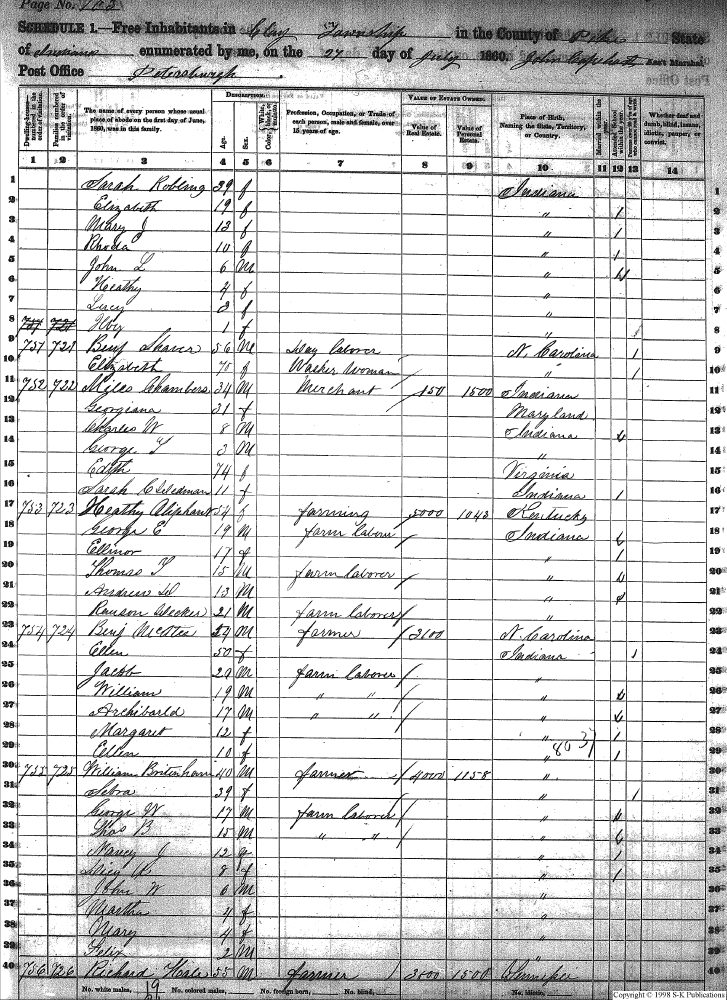 Page No.
SCHEDULE 1.—Free Inhabitants in Clay Township in the County of Pike State
of Indiana enumerated by me, on the 27 day of July 1860. Ass't Marshal.
Post Office Petersburgh
Dwelling-houses—numbered in the order of visitation.
Families numbered in the order of visitation.
The name of every person whose usual place of abode on the first day of June, 1860, was in this family.
DESCRIPTION.
Age.
Sex.
Color, White, black, or mulatto.
Profession, Occupation, or Trade of each person, male and female, over 15 years of age.
VALUE OF ESTATE OWNED.
Value of Real Estate.
Value of Personal Estate.
Place of Birth, Naming the State, Territory, or Country.
Married within the year.
Attended School within the year.
Whether deaf and dumb, blind, insane, idiotic, pauper, or convict.
1 2 3 4 5 6 7 8 9 10 11 12 13 14
1 Sarah Robling 39 f Indiana 1
2 Elizabeth 19 f " 1 2
3 Mary J 13 f " 1 3
4 Rhoda 10 f " 1 4
5 John L 6 M " 5
6 Heathy 4 f " 6
7 Lucy 3 f " 7
8 1 f " 8
9 751 721 Benj Shaver 56 M Day laborer N. Carolina 1 9
10 Elizabeth 70 f Washer Woman " 1 10
11 752 722 Miles Chambers 34 M Merchant 150 1500 Indiana 11
12 Georgiana 31 f Maryland 12
13 Charles W 8 M Indiana 13
14 George T 3 M " 14
15 Edith 74 f Virginia 15
16 Sarah C 11 f Indiana 1 16
17 753 723 Heathy Oliphant 54 f farming 5000 1043 Kentucky 17
18 George E 19 M farm labour Indiana 18
19 Ellinor 17 f " 1 19
20 Thomas T 15 M farm laborer " 20
21 Andrew 13 M " 21
22 Ranson Decker 21 M farm laborer " 22
23 754 724 Benj McAtee 59 M farmer 3100 N. Carolina 23
24 Ellen 50 f Indiana 1 24
25 Jacob 20 M farm laborer " 25
26 William 19 M " " " 26
27 Archibarld 17 M " " " 27
28 Margaret 12 f " 1 28
29 Ellen 10 f " 1 29
30 755 725 William Britinham 40 M farmer 4000 1158 " 30
31 39 f " 1 31
32 George W 17 M farm laborer " 32
33 Thos B 15 M " " " 33
34 Nancy J 12 f " 1 34
35 8 f " 1 35
36 John W 6 M " 36
37 Martha 4 f " 37
38 Mary 4 f " 38
39 Felix 2 M " 39
40 756 726 Richard Hale 55 M farmer 3500 1500 Tennessee 40
No. white males, No. colored males, No. foreign born, No. blind,
Copyright © 1998 S-K Publications